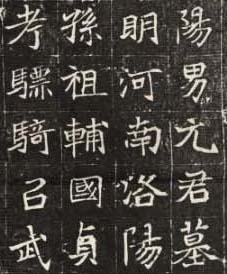 陽男元君墓
明河南洛陽
孫祖輔國貞
考驃騎召武